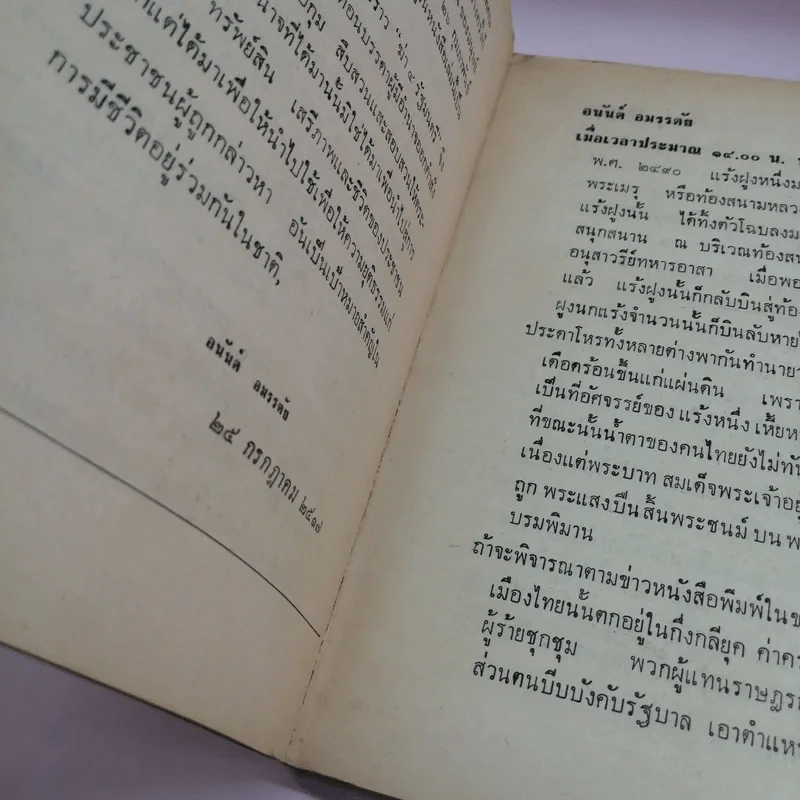 ราว "ฆ่า ๔ รัฐมนตรี" ใน
กุม สืบสวนและสอบสวนให้พระ
ทรัพย์สิน เสรีภาพและชีวิตของประชาชน
นาจที่ได้มานั้นมิใช่ได้มาเพื่อนำไปสู่การ
แต่ได้มาเพื่อให้นำไปใช้เพื่อให้ความยุติธรรมแก่
ประชาชนผู้ถูกกล่าวหา อันเป็นเป้าหมายสำคัญใน
การมีชีวิตอยู่ร่วมกันในชาติ,
อนันต์ อมรรตัย
๒๕ กรกฎาคม ๒๕๑๗
อนันต์ อมรรตัย
เมื่อเวลาประมาณ ๑๔.๐๐ น.
พ.ศ. ๒๔๙๐ แร้งฝูงหนึ่งม
พระเมรุ หรือท้องสนามหลว
แร้งฝูงนั้น ได้ทิ้งตัวโฉบลงม
สนุกสนาน ณ บริเวณท้องสน
อนุสาวรีย์ทหารอาสา เมื่อพอ
แล้ว แร้งฝูงนั้นก็กลับบินสู่ท้อง
ฝูงนกแร้งจำนวนนั้นก็บินลับหายไ
ประดาโหรทั้งหลายต่างพากันทำนายว
เดือดร้อนขึ้นแก่แผ่นดิน เพรา
เป็นที่อัศจรรย์ของ แร้งหนึ่ง เหี้ยห
ที่ขณะนั้นน้ำตาของคนไทยยังไม่ทัน
เนื่องแต่พระบาท สมเด็จพระเจ้าอยู่
ถูก พระแสงปืน สิ้นพระชนม์ บน พ
บรมพิมาน
ถ้าจะพิจารณาตามข่าวหนังสือพิมพ์ในข
เมืองไทยนั้นตกอยู่ในกึ่งกลียุค ค่าคร
ผู้ร้ายชุกชุม พวกผู้แทนราษฎร
ส่วนตนบีบบังคับรัฐบาล เอาตำแห